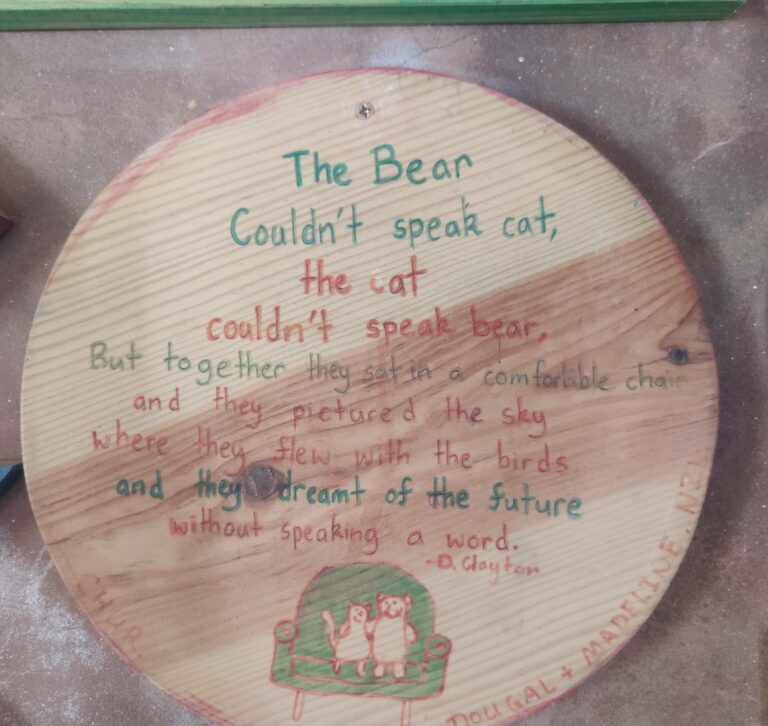 The Bear
Couldn't speak cat,
the cat
couldn't speak bear.
But together they sat in a comfortable chair
and they pictured the sky
where they flew with the birds
and they dreamt of the future
without speaking a word.
-D. Clayton
DOUGAL + MADELINE, NZ!